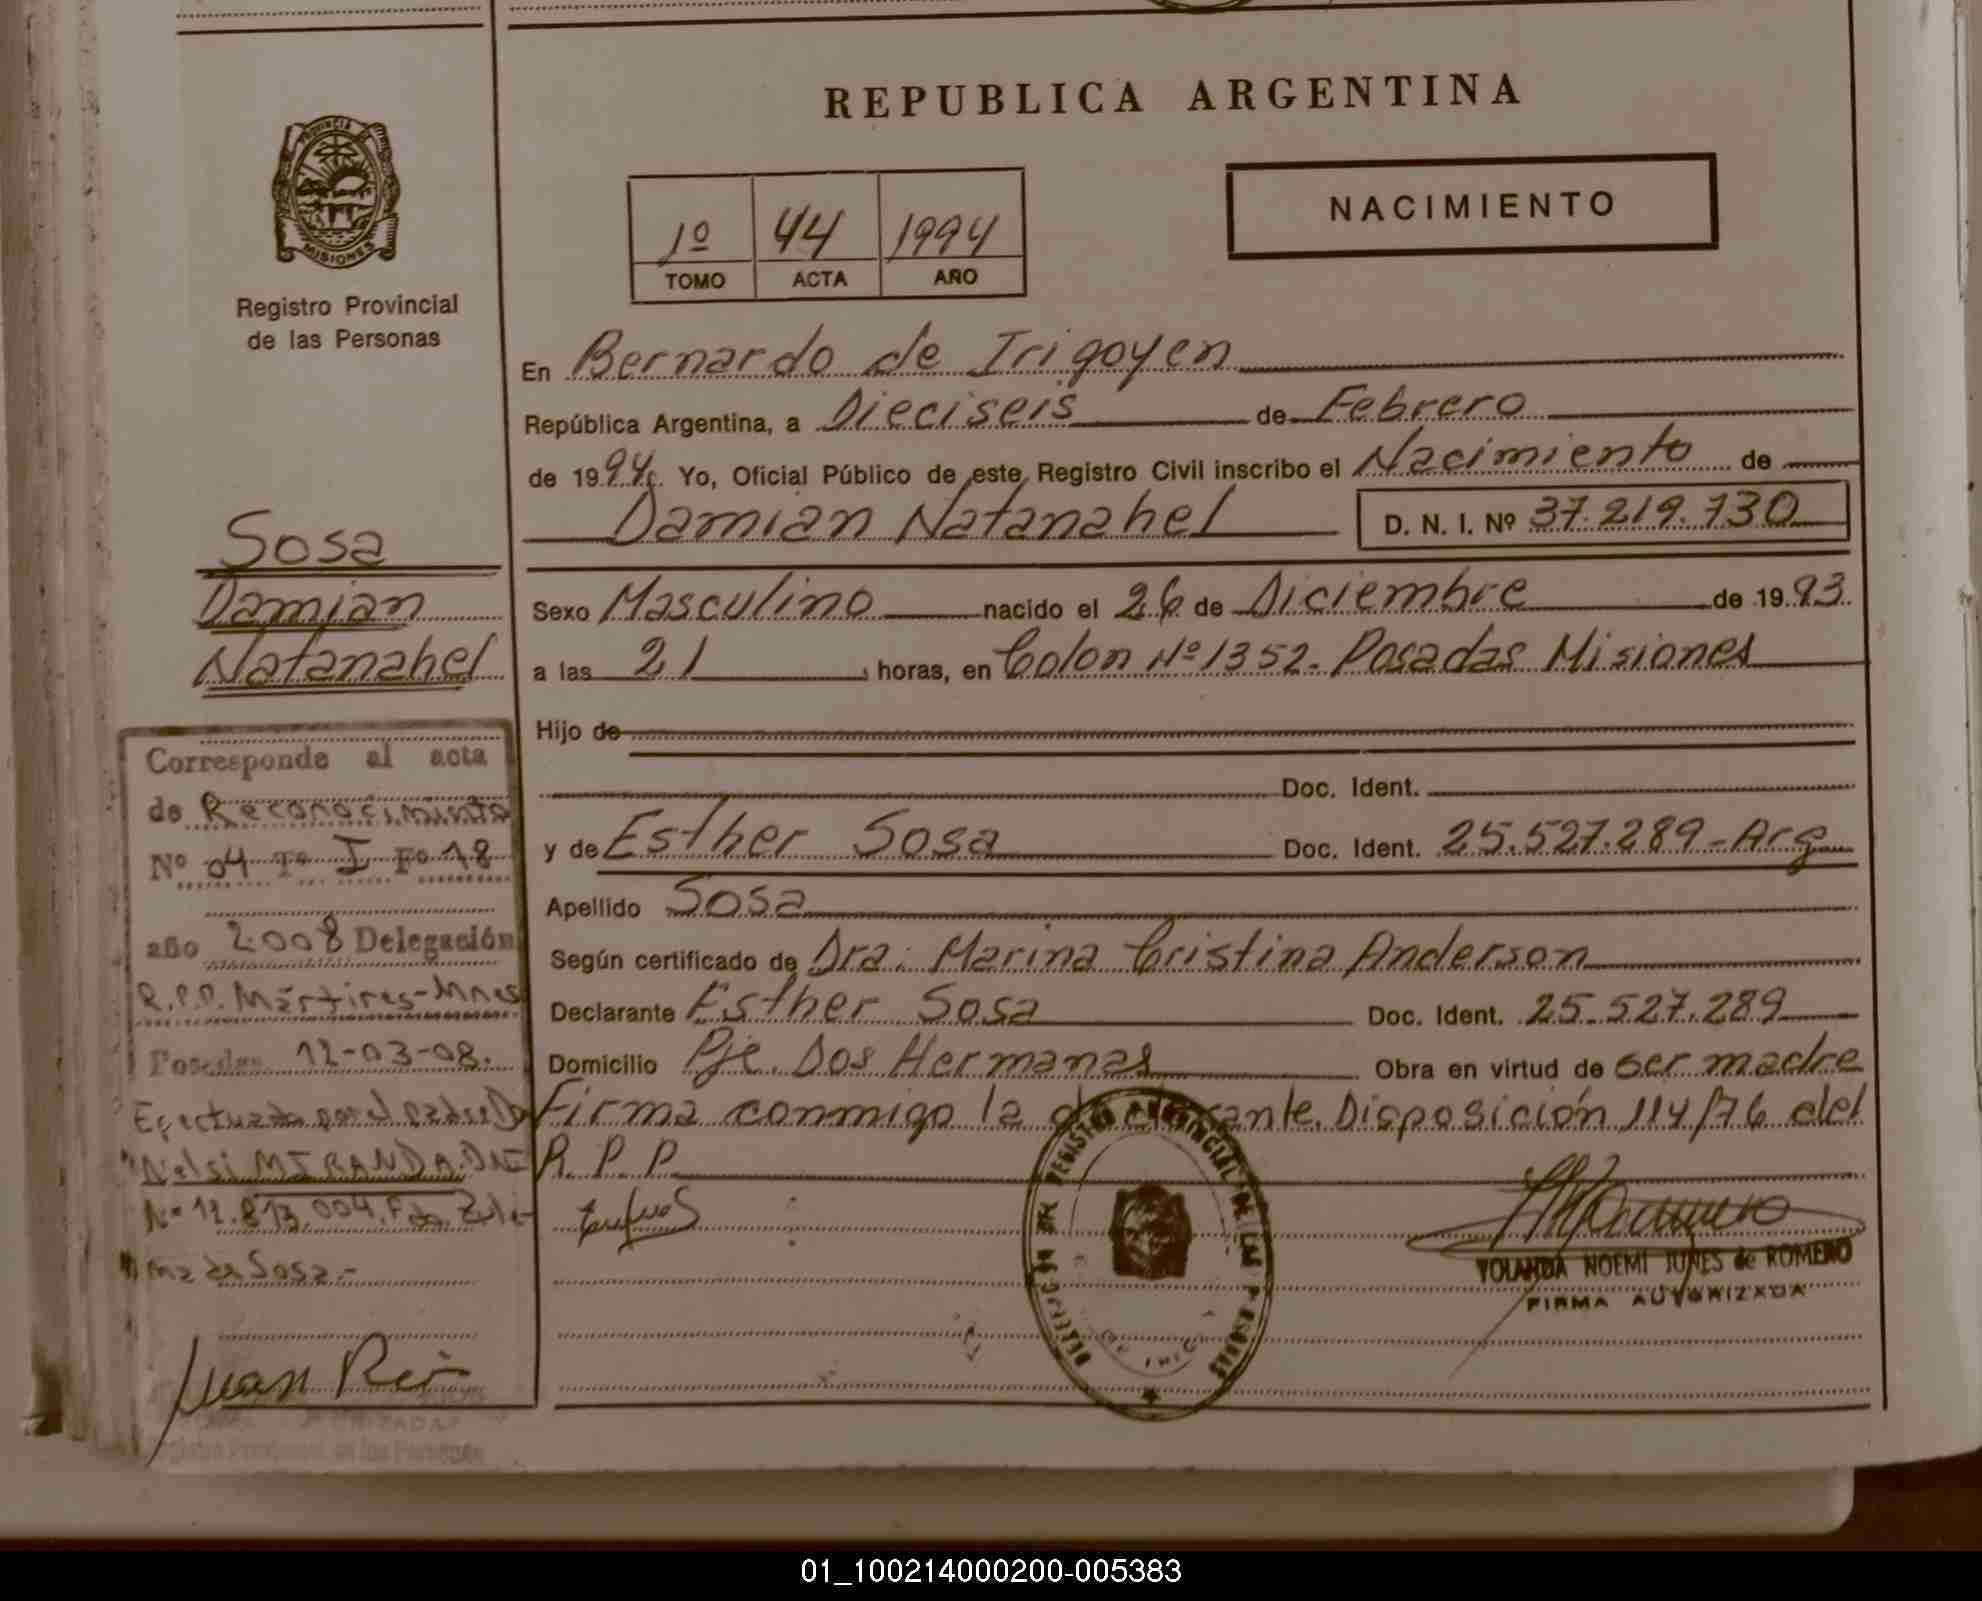 REPUBLICA ARGENTINA
PROVINCIA DE
MISIONES
Registro Provincial
de las Personas
NACIMIENTO
1º 44 1994
TOMO ACTA AÑO
En Bernardo de Irigoyen
República Argentina, a Dieciseis de Febrero
de 1994. Yo, Oficial Público de este Registro Civil inscribo el Nacimiento de
Damian Natanahel D. N. I. Nº 37.219.730
Sexo Masculino nacido el 26 de Diciembre de 1993.
a las 21 horas, en Colon Nº 1352. Posadas Misiones
Hijo de
Doc. Ident.
y de Esther Sosa Doc. Ident. 25.527.289-Arg
Apellido Sosa
Según certificado de Dra. Marina Cristina Anderson
Declarante Esther Sosa Doc. Ident. 25.527.289
Domicilio Pje. Dos Hermanas Obra en virtud de ser madre
Firma conmigo la declarante. Disposición 114/76 del
R.P.P.
YOLANDA NOEMI JUNES de ROMERO
FIRMA AUTORIZADA
Sosa
Damian
Natanahel
Corresponde al acta
de Reconocimiento
Nº 04 Tº I Fº 18
año 2008 Delegación
R.P.P. Mártires-Mnes
Posadas 12-03-08.
Efectuada por el padre Dn
Nelsi MIRANDA. DNI
Nº 12.813.004. Fdo. Zule-
ma de Sosa.-
REGISTRO PROVINCIAL DE LAS PERSONAS
Registro Provincial de las Personas
01_100214000200-005383